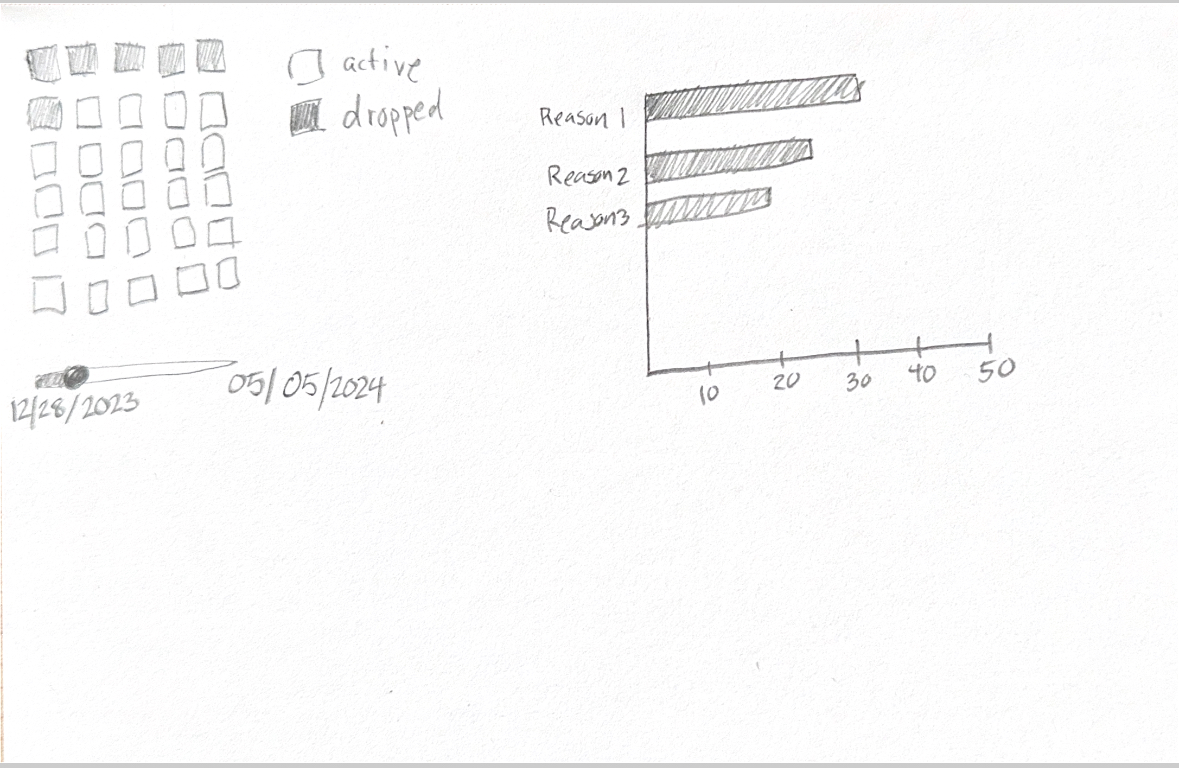 active
dropped
12/28/2023
05/05/2024
Reason 1
Reason 2
Reason3
10 20 30 40 50